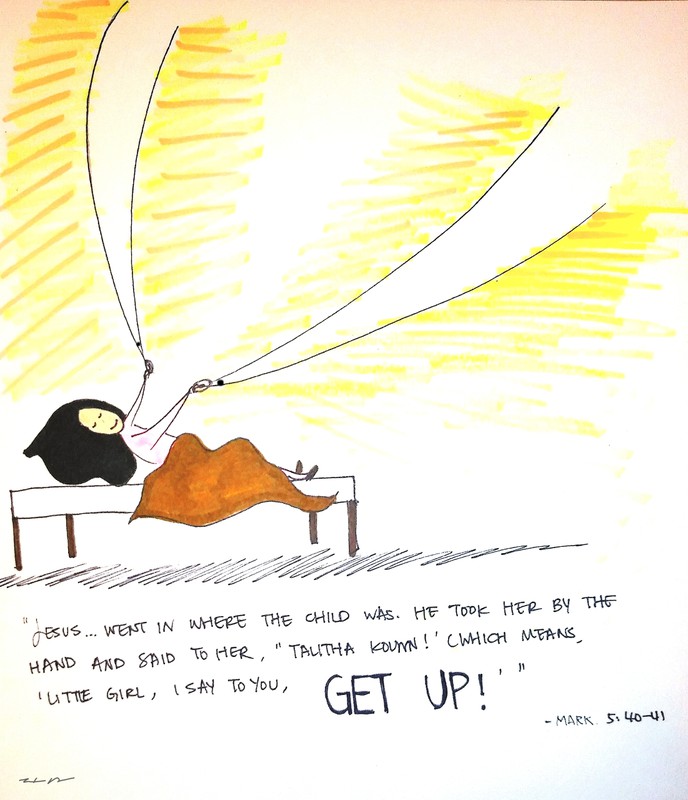 "JESUS... WENT IN WHERE THE CHILD WAS. HE TOOK HER BY THE
HAND AND SAID TO HER, "TALITHA KOUM!' (WHICH MEANS,
'LITTLE GIRL, I SAY TO YOU, GET UP!' "
-MARK. 5:40-41